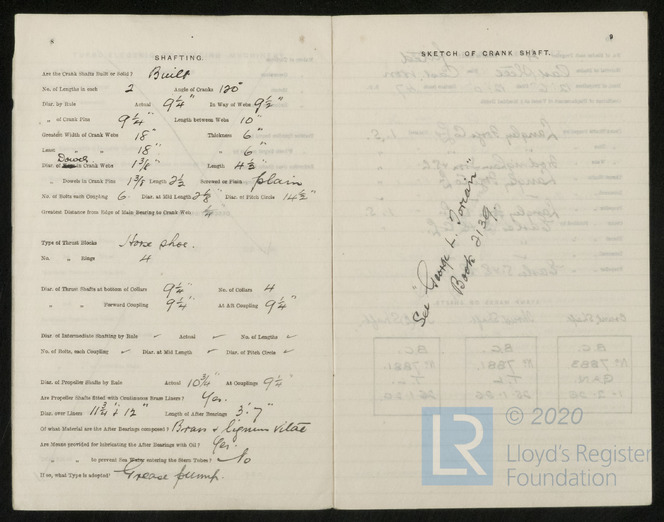 8
SHAFTING.
Are the Crank Shafts Built or Solid? Built
No. of Lengths in each 2 Angle of Cranks 120°
Diar. by Rule Actual 9¼" In Way of Webs 9½"
" of Crank Pins 9¼" Length between Webs 10"
Greatest Width of Crank Webs 18" Thickness 6"
Least " " 18" " 6"
Diar. of Dowels in Crank Webs 1⅜" Length 4½"
" Dowels in Crank Pins 1⅜ Length 2½ Screwed or Plain plain
No. of Bolts each Coupling 6 Diar. at Mid Length 2⅛" Diar. of Pitch Circle 14½"
Greatest Distance from Edge of Main Bearing to Crank Web ¼"
Type of Thrust Blocks Horse shoe.
No. " Rings 4
Diar. of Thrust Shafts at bottom of Collars 9¼" No. of Collars 4
" " Forward Coupling 9¼" At Aft Coupling 9¼"
Diar. of Intermediate Shafting by Rule ✓ Actual ✓ No. of Lengths ✓
No. of Bolts, each Coupling ✓ Diar. at Mid Length ✓ Diar. of Pitch Circle ✓
Diar. of Propeller Shafts by Rule Actual 10¾" At Couplings 9¼"
Are Propeller Shafts fitted with Continuous Brass Liners? Yes.
Diar. over Liners 11¾" & 12" Length of After Bearings 3'-7"
Of what Material are the After Bearings composed? Brass & lignum vitae
Are Means provided for lubricating the After Bearings with Oil? Yes.
" " to prevent Sea Water entering the Stern Tubes? No
If so, what Type is adopted? Grease pump.
9
SKETCH OF CRANK SHAFT.
See "George L. Torrian"
Book 2139
© 2020
LR
Lloyd's Register
Foundation